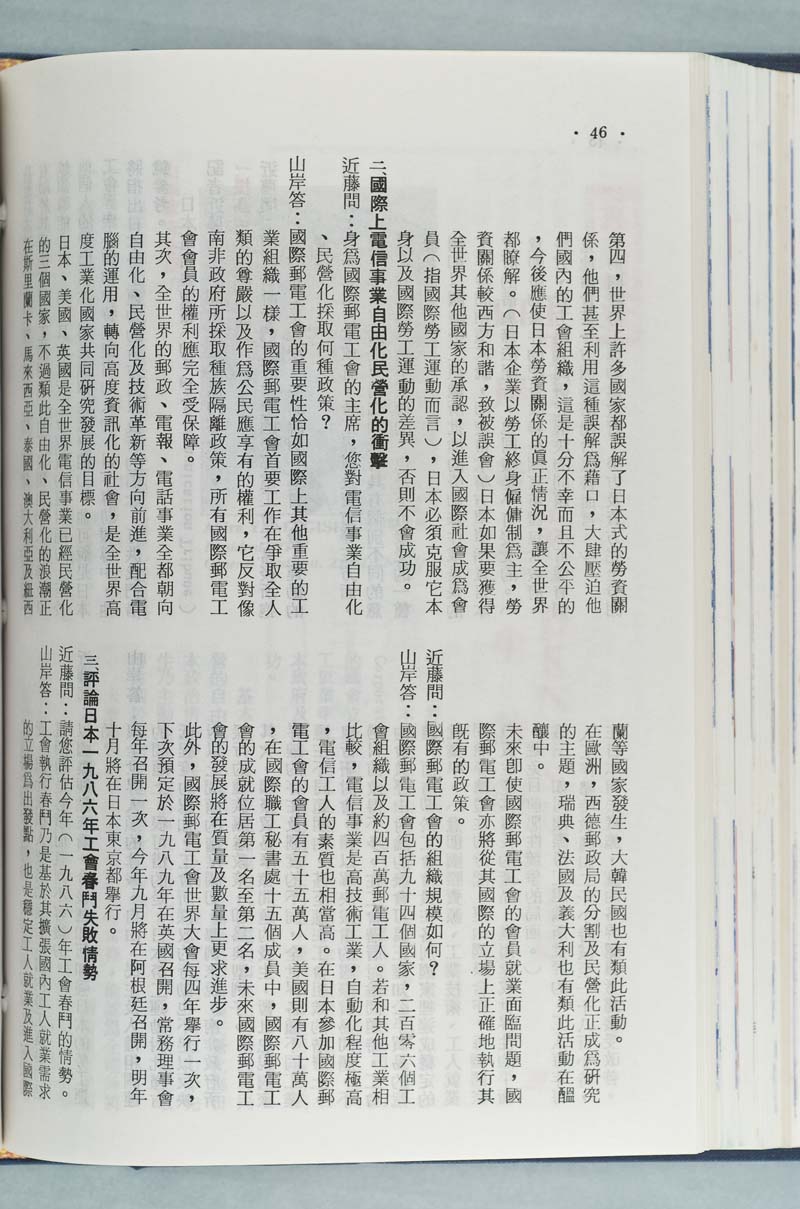 • 46 •
第四，世界上許多國家都誤解了日本式的勞資關
係，他們甚至利用這種誤解爲藉口，大肆壓迫他
們國內的工會組織，這是十分不幸而且不公平的
，今後應使日本勞資關係的眞正情況，讓全世界
都瞭解。（日本企業以勞工終身僱傭制爲主，勞
資關係較西方和諧，致被誤會）日本如果要獲得
全世界其他國家的承認，以進入國際社會成爲會
員（指國際勞工運動而言），日本必須克服它本
身以及國際勞工運動的差異，否則不會成功。
二、國際上電信事業自由化民營化的衝擊
近藤問：身爲國際郵電工會的主席，您對電信事業自由化
、民營化採取何種政策？
山岸答：國際郵電工會的重要性恰如國際上其他重要的工
業組織一樣，國際郵電工會首要工作在爭取全人
類的尊嚴以及作爲公民應享有的權利，它反對像
南非政府所採取種族隔離政策，所有國際郵電工
會會員的權利應完全受保障。
其次，全世界的郵政、電報、電話事業全都朝向
自由化、民營化及技術革新等方向前進，配合電
腦的運用，轉向高度資訊化的社會，是全世界高
度工業化國家共同研究發展的目標。
日本、美國、英國是全世界電信事業已經民營化
的三個國家，不過類此自由化、民營化的浪潮正
在斯里蘭卡、馬來西亞、泰國、澳大利亞及紐西
蘭等國家發生，大韓民國也有類此活動。
在歐洲，西德郵政局的分割及民營化正成爲研究
的主題，瑞典、法國及義大利也有類此活動在醞
釀中。
未來卽使國際郵電工會的會員就業面臨問題，國
際郵電工會亦將從其國際的立場上正確地執行其
旣有的政策。
近藤問：國際郵電工會的組織規模如何？
山岸答：國際郵電工會包括九十四個國家，二百零六個工
會組織以及約四百萬郵電工人。若和其他工業相
比較，電信事業是高技術工業，自動化程度極高
，電信工人的素質也相當高。在日本參加國際郵
電工會的會員有五十五萬人，美國則有八十萬人
，在國際職工秘書處十五個成員中，國際郵電工
會的成就位居第一名至第二名，未來國際郵電工
會的發展將在質量及數量上更求進步。
此外，國際郵電工會世界大會每四年舉行一次，
下次預定於一九八九年在英國召開，常務理事會
每年召開一次，今年九月將在阿根廷召開，明年
十月將在日本東京都舉行。
三、評論日本一九八六年工會春鬥失敗情勢
近藤問：請您評估今年（一九八六）年工會春鬥的情勢。
山岸答：工會執行春鬥乃是基於其擴張國內工人就業需求
的立場爲出發點，也是穩定工人就業及進入國際